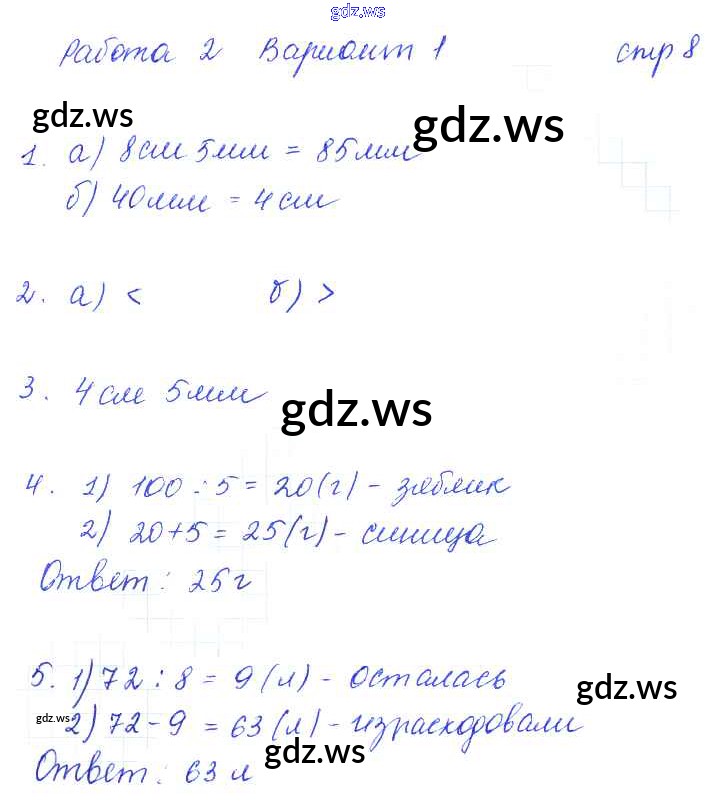 gdz.ws
Работа 2 Вариант 1 стр 8
gdz.ws
gdz.ws
1. а) 8см 5мм = 85мм
б) 40мм = 4см
2. а) < б) >
3. 4см 5мм
gdz.ws
4. 1) 100 : 5 = 20(г) - зяблик
2) 20+5 = 25(г) - синица
Ответ: 25г
5. 1) 72 : 8 = 9(л) - осталась
gdz.ws
gdz.ws
2) 72 - 9 = 63(л) - израсходовали
gdz.ws
Ответ: 63 л